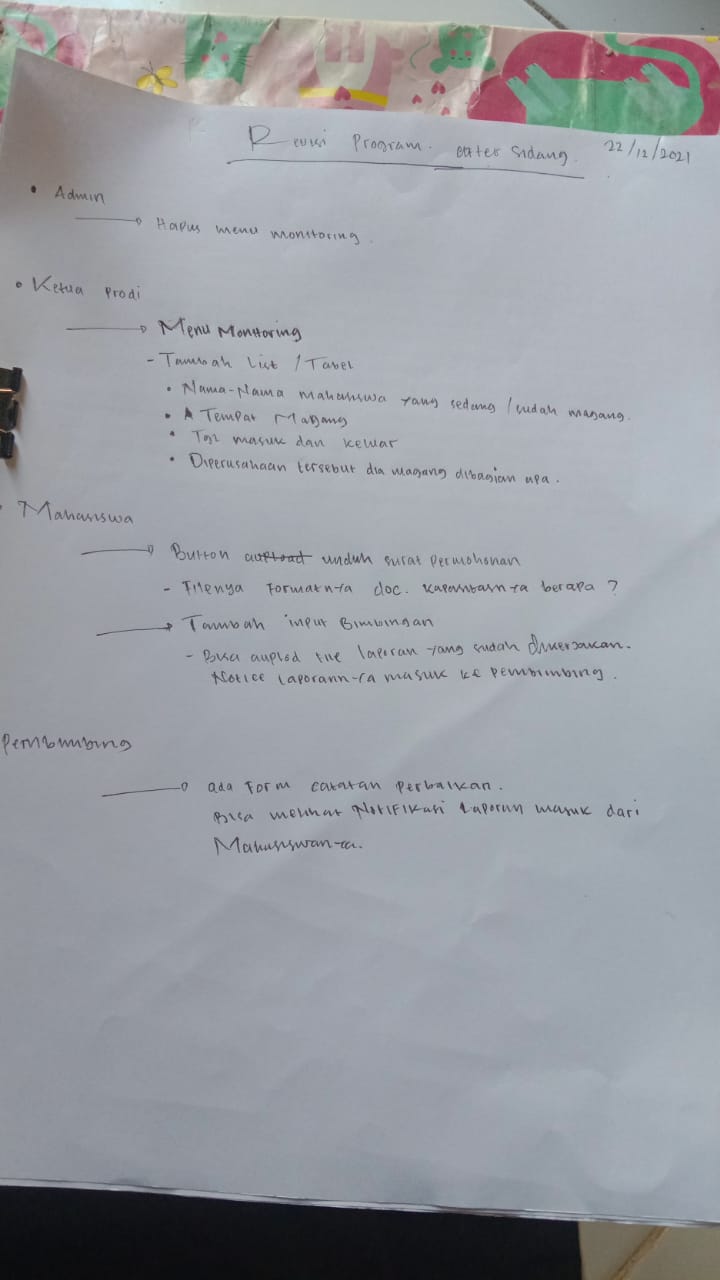 Revisi Program. after sidang. 22/12/2021
• Admin
→ Hapus menu monitoring.
• Ketua prodi
→ Menu Monitoring
- Tambah List / Tabel
• Nama-Nama mahasiswa yang sedang / sudah magang.
• Tempat Magang
• Tgl masuk dan keluar
• Diperusahaan tersebut dia magang dibagian apa.
• Mahasiswa
→ Button aupload unduh surat permohonan
- Filenya Formatnya doc. kapasitasnya berapa ?
→ Tambah input Bimbingan
- Bisa auplod file laporan yang sudah dikerjakan.
Notice Laporannya masuk ke pembimbing.
Pembimbing
→ ada Form catatan perbaikan.
Bisa melihat Notifikasi Laporan masuk dari
Mahasiswanya.